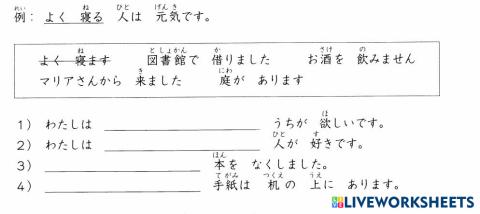 例： よく 寝る 人は 元気です。
よく 寝ます 図書館で 借りました お酒を 飲みません
マリアさんから 来ました 庭が あります
1） わたしは ＿＿＿＿＿＿＿＿ うちが 欲しいです。
2） わたしは ＿＿＿＿＿＿＿＿ 人が 好きです。
3） ＿＿＿＿＿＿＿＿ 本を なくしました。
4） ＿＿＿＿＿＿＿＿ 手紙は 机の 上に あります。
LIVEWORKSHEETS